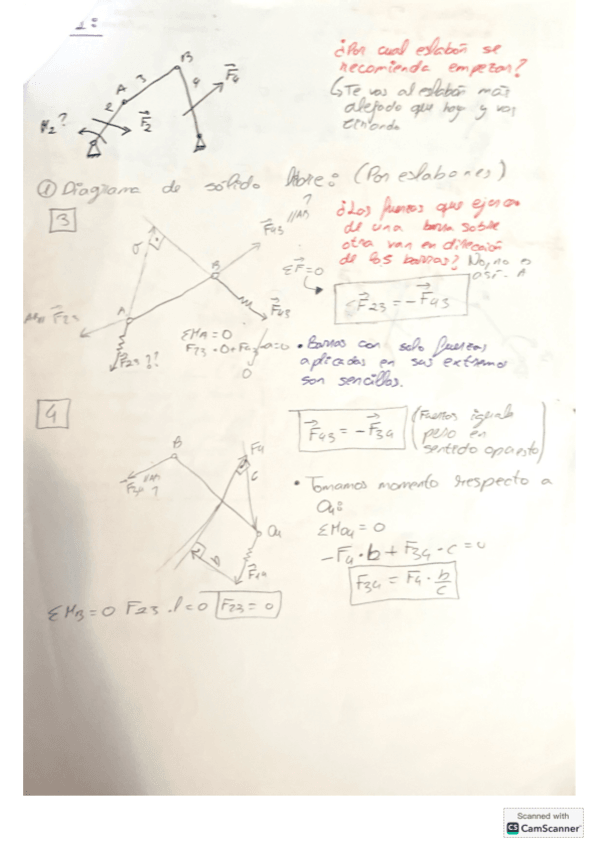 1:
¿Por cual eslabón se
recomienda empezar?
↳ Te vas al eslabón más
alejado que hay y vas
tirando
B
3
A
4
F4
2
M2?
F2
① Diagrama de sólido libre: (Por eslabones)
3
?
F43 //AB
¿Las fuerzas que ejercen
de una barra sobre
otra van en dirección
de las barras? No, no es
así.
ΣF=0
F23 = -F43
B
A
F23
F43
F23??
ΣMA=0
F23·0+F43·a=0
0
• Barras con solo fuerzas
aplicadas en sus extremos
son sencillas.
4
F43 = -F34
(Fuerzas iguales
pero en
sentido opuesto)
B
F4
c
F34 //AB
?
O4
b
F14
• Tomamos momento respecto a
O4:
ΣMO4 = 0
-F4·b + F34·c = 0
F34 = F4·b/c
ΣMB=0 F23·l=0 F23=0
Scanned with
CS CamScanner